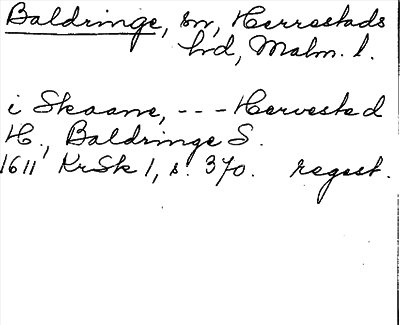 Baldringe, sn, Herrestads
hrd, Malm. l.
i Skaane, --- Hervested
H., Baldringe S.
1611 KrSk 1, s. 370. regest.